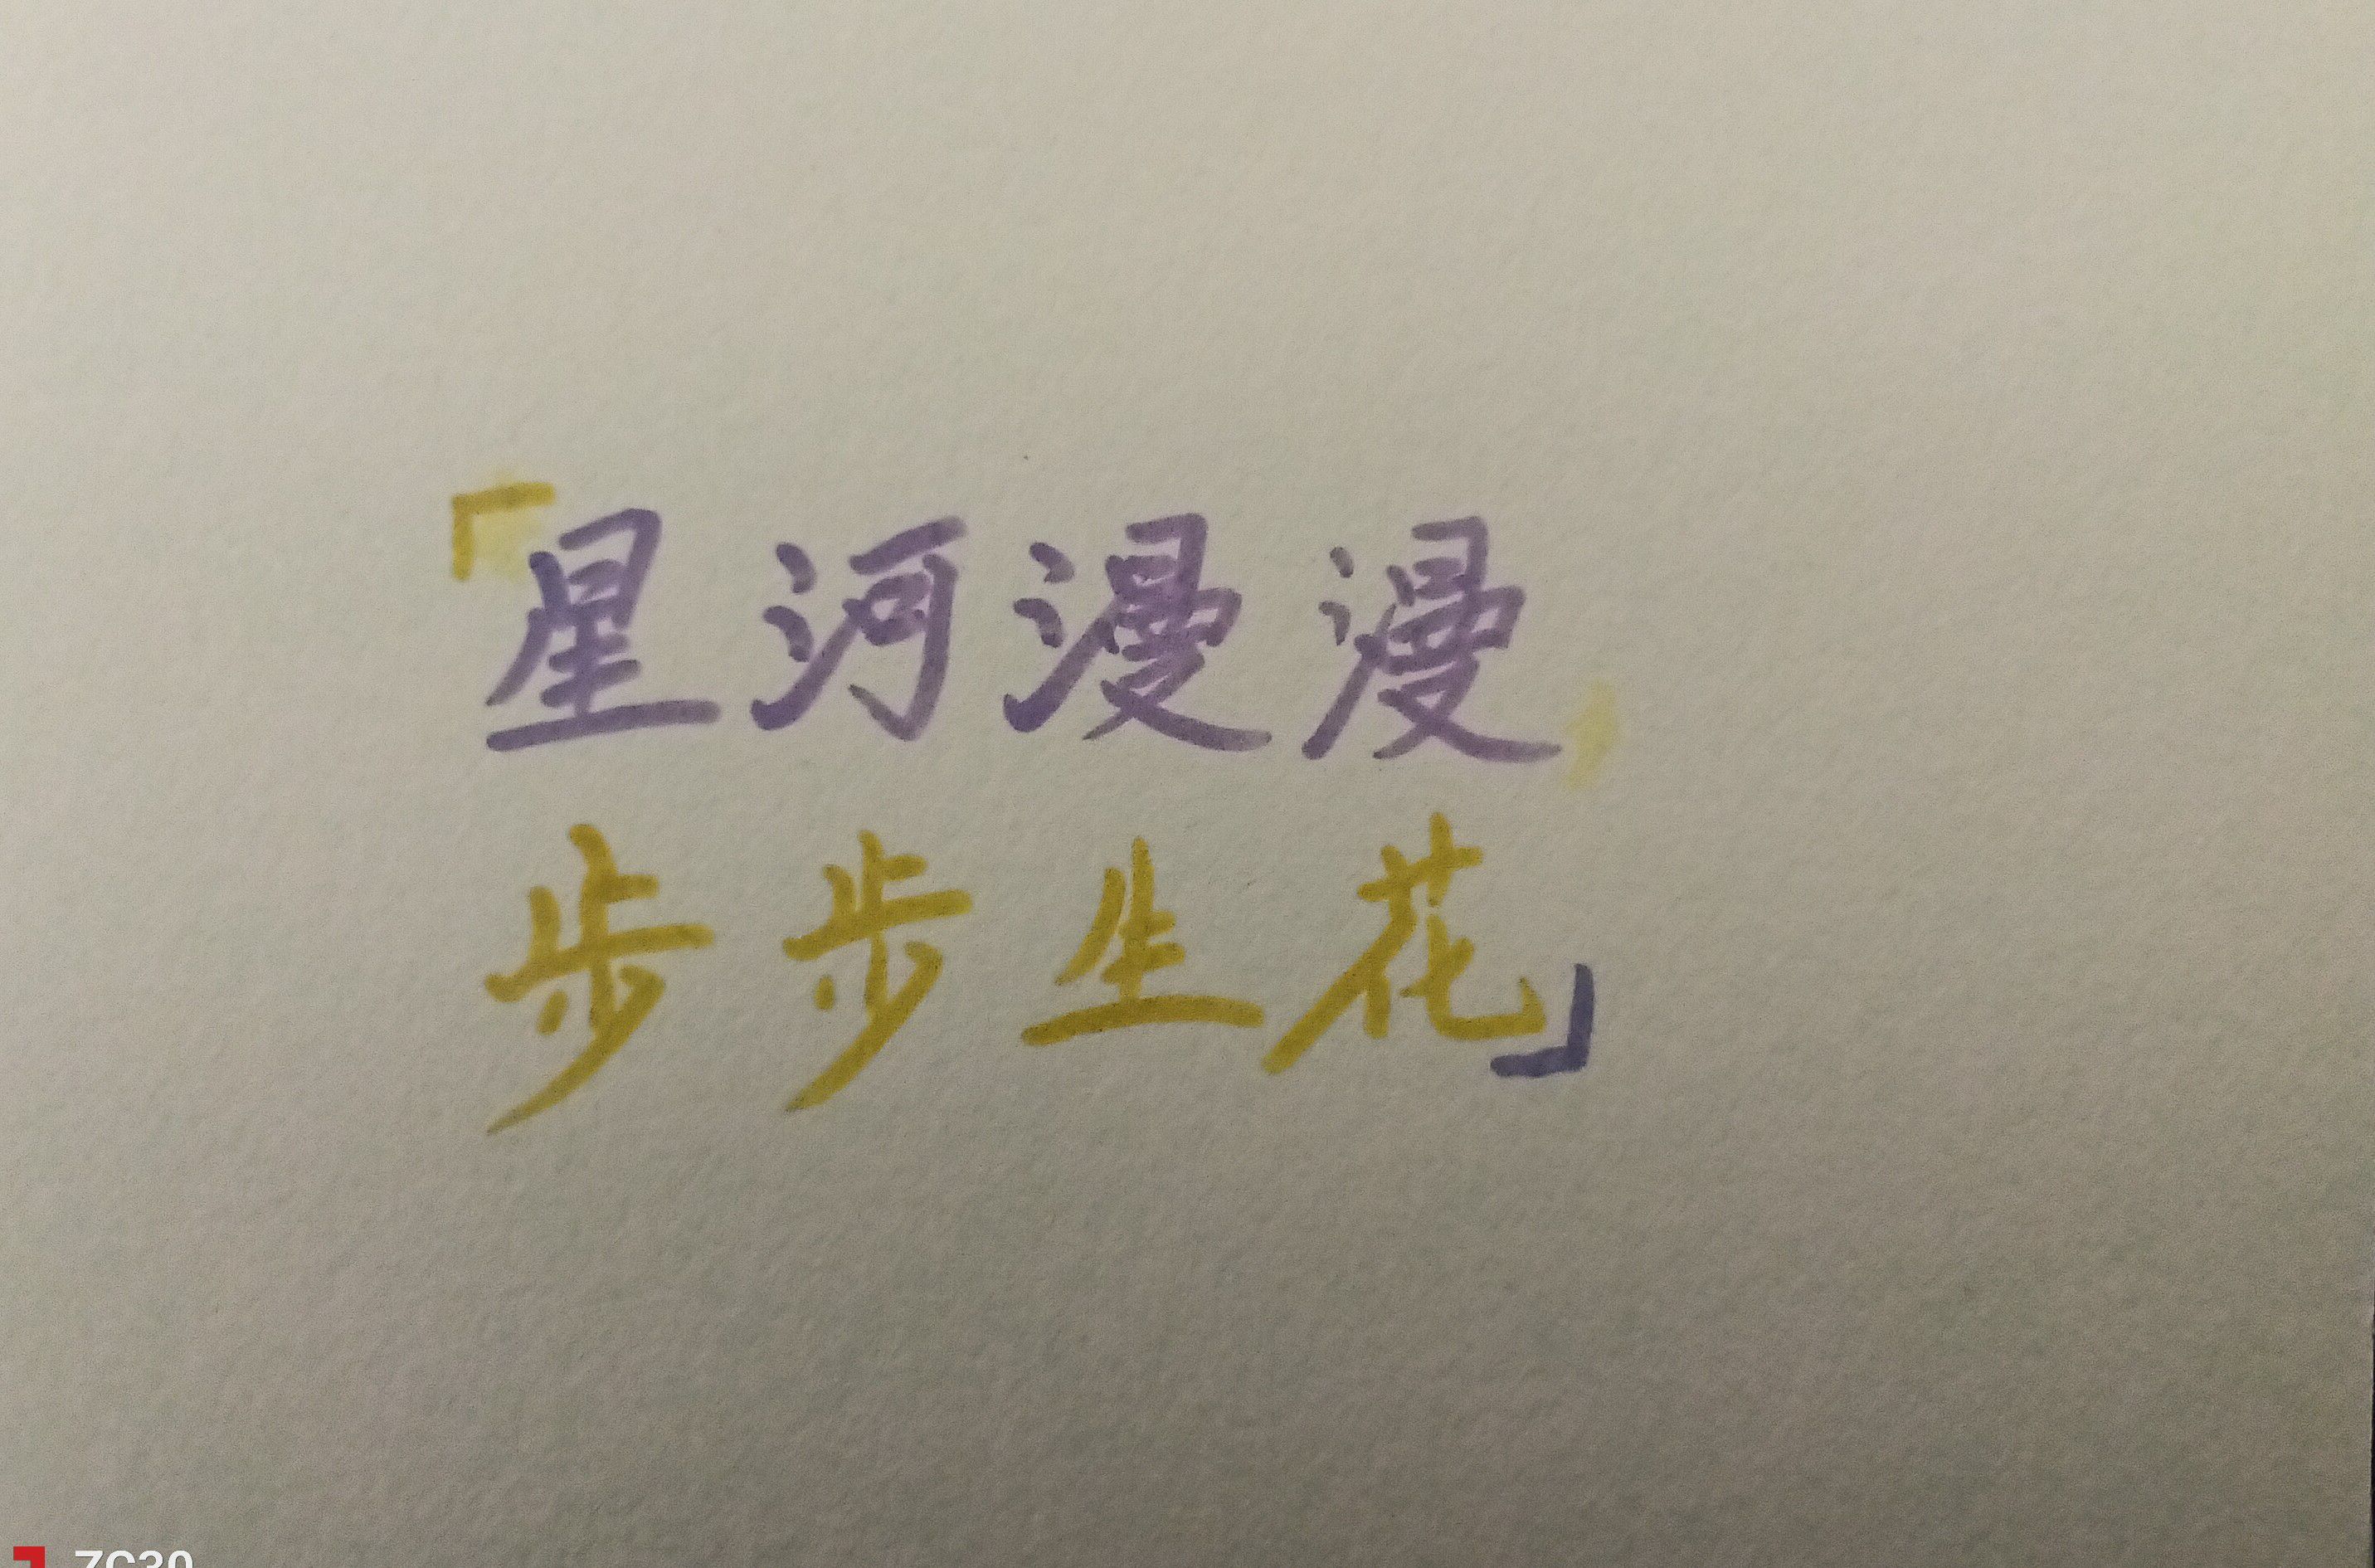 「星河漫漫,
步步生花」